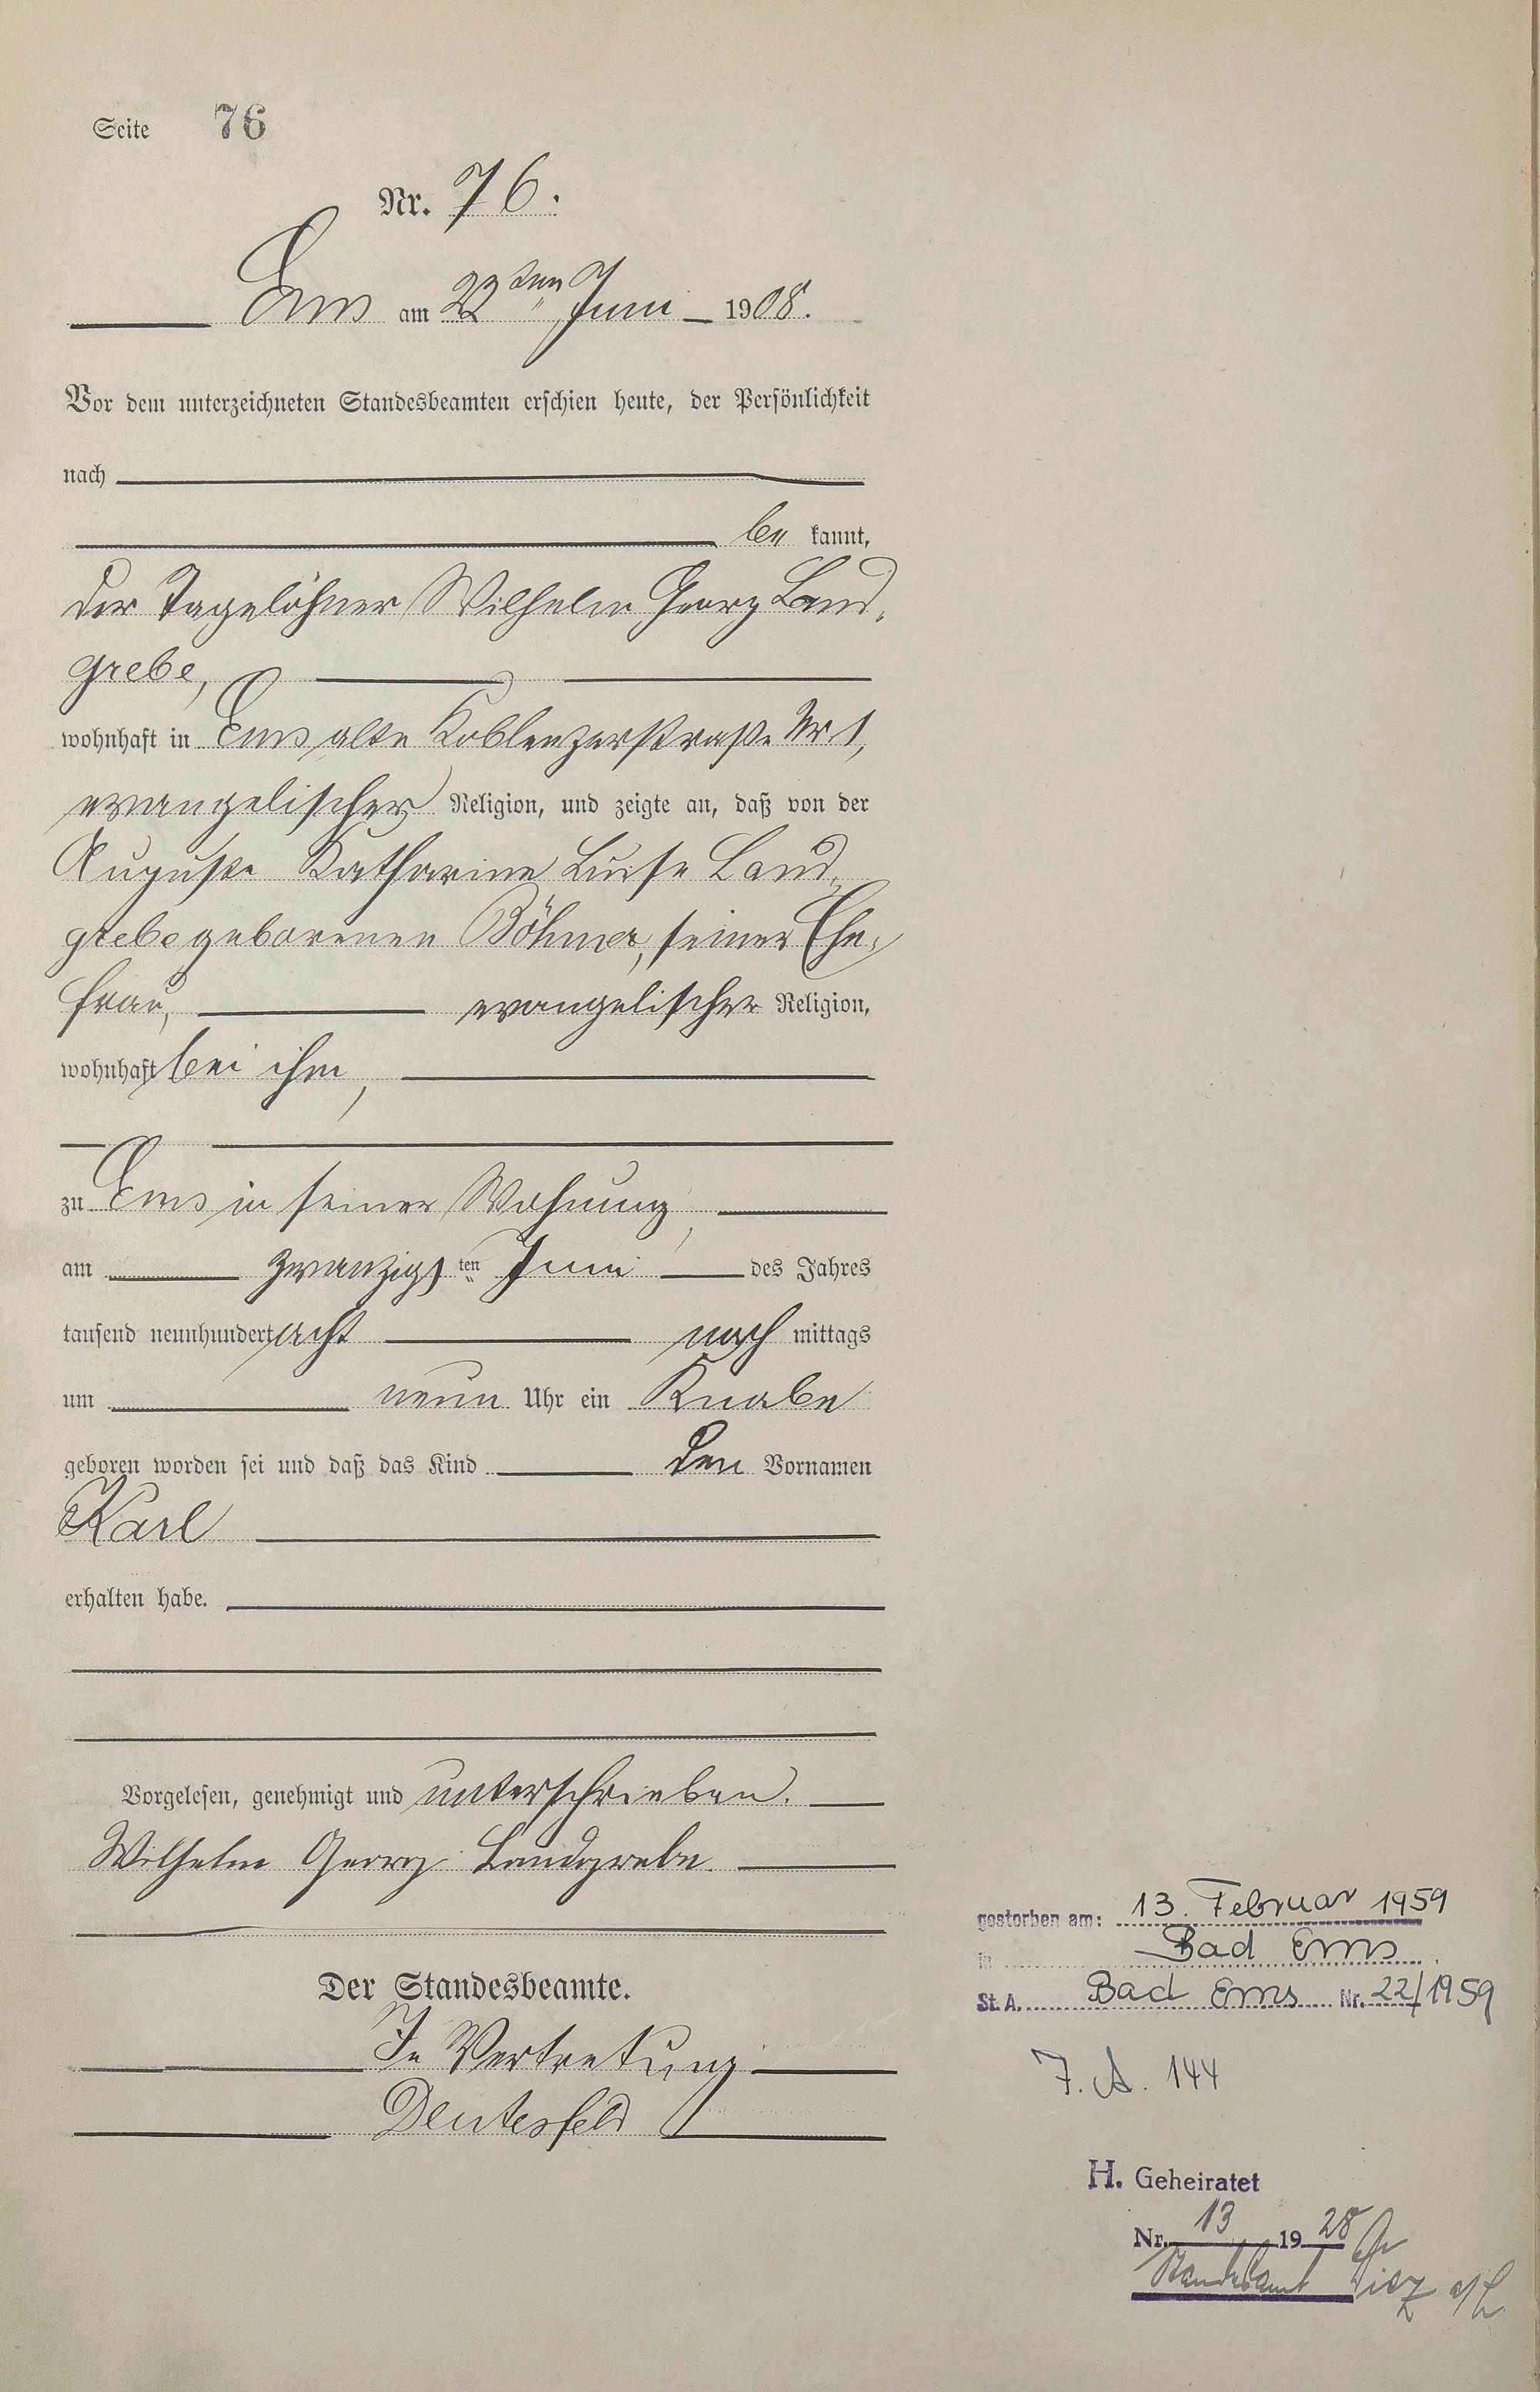 Seite 76
Nr. 76.
Ems am 22ten Juni 1908.
Vor dem unterzeichneten Standesbeamten erschien heute, der Persönlichkeit
nach
be kannt,
der Tagelöhner Wilhelm Georg Land-
grebe,
wohnhaft in Ems alte Koblenzerstraße Nr. 1,
evangelischer Religion, und zeigte an, daß von der
Auguste Katharine Luise Land-
grebe geborenen Böhmer, seiner Ehe-
frau, evangelischer Religion,
wohnhaft bei ihm,
zu Ems in seiner Wohnung,
am zwanzigsten Juni des Jahres
tausend neunhundert acht nach mittags
um neun Uhr ein Knabe
geboren worden sei und daß das Kind den Vornamen
Karl
erhalten habe.
Vorgelesen, genehmigt und unterschrieben.
Wilhelm Georg Landgrebe.
Der Standesbeamte.
In Vertretung
Deutesfeld
gestorben am: 13. Februar 1959
in Bad Ems
St. A. Bad Ems Nr. 22/1959
7. A. 144
H. Geheiratet
Nr. 13 1928
Standesamt Diez a/L